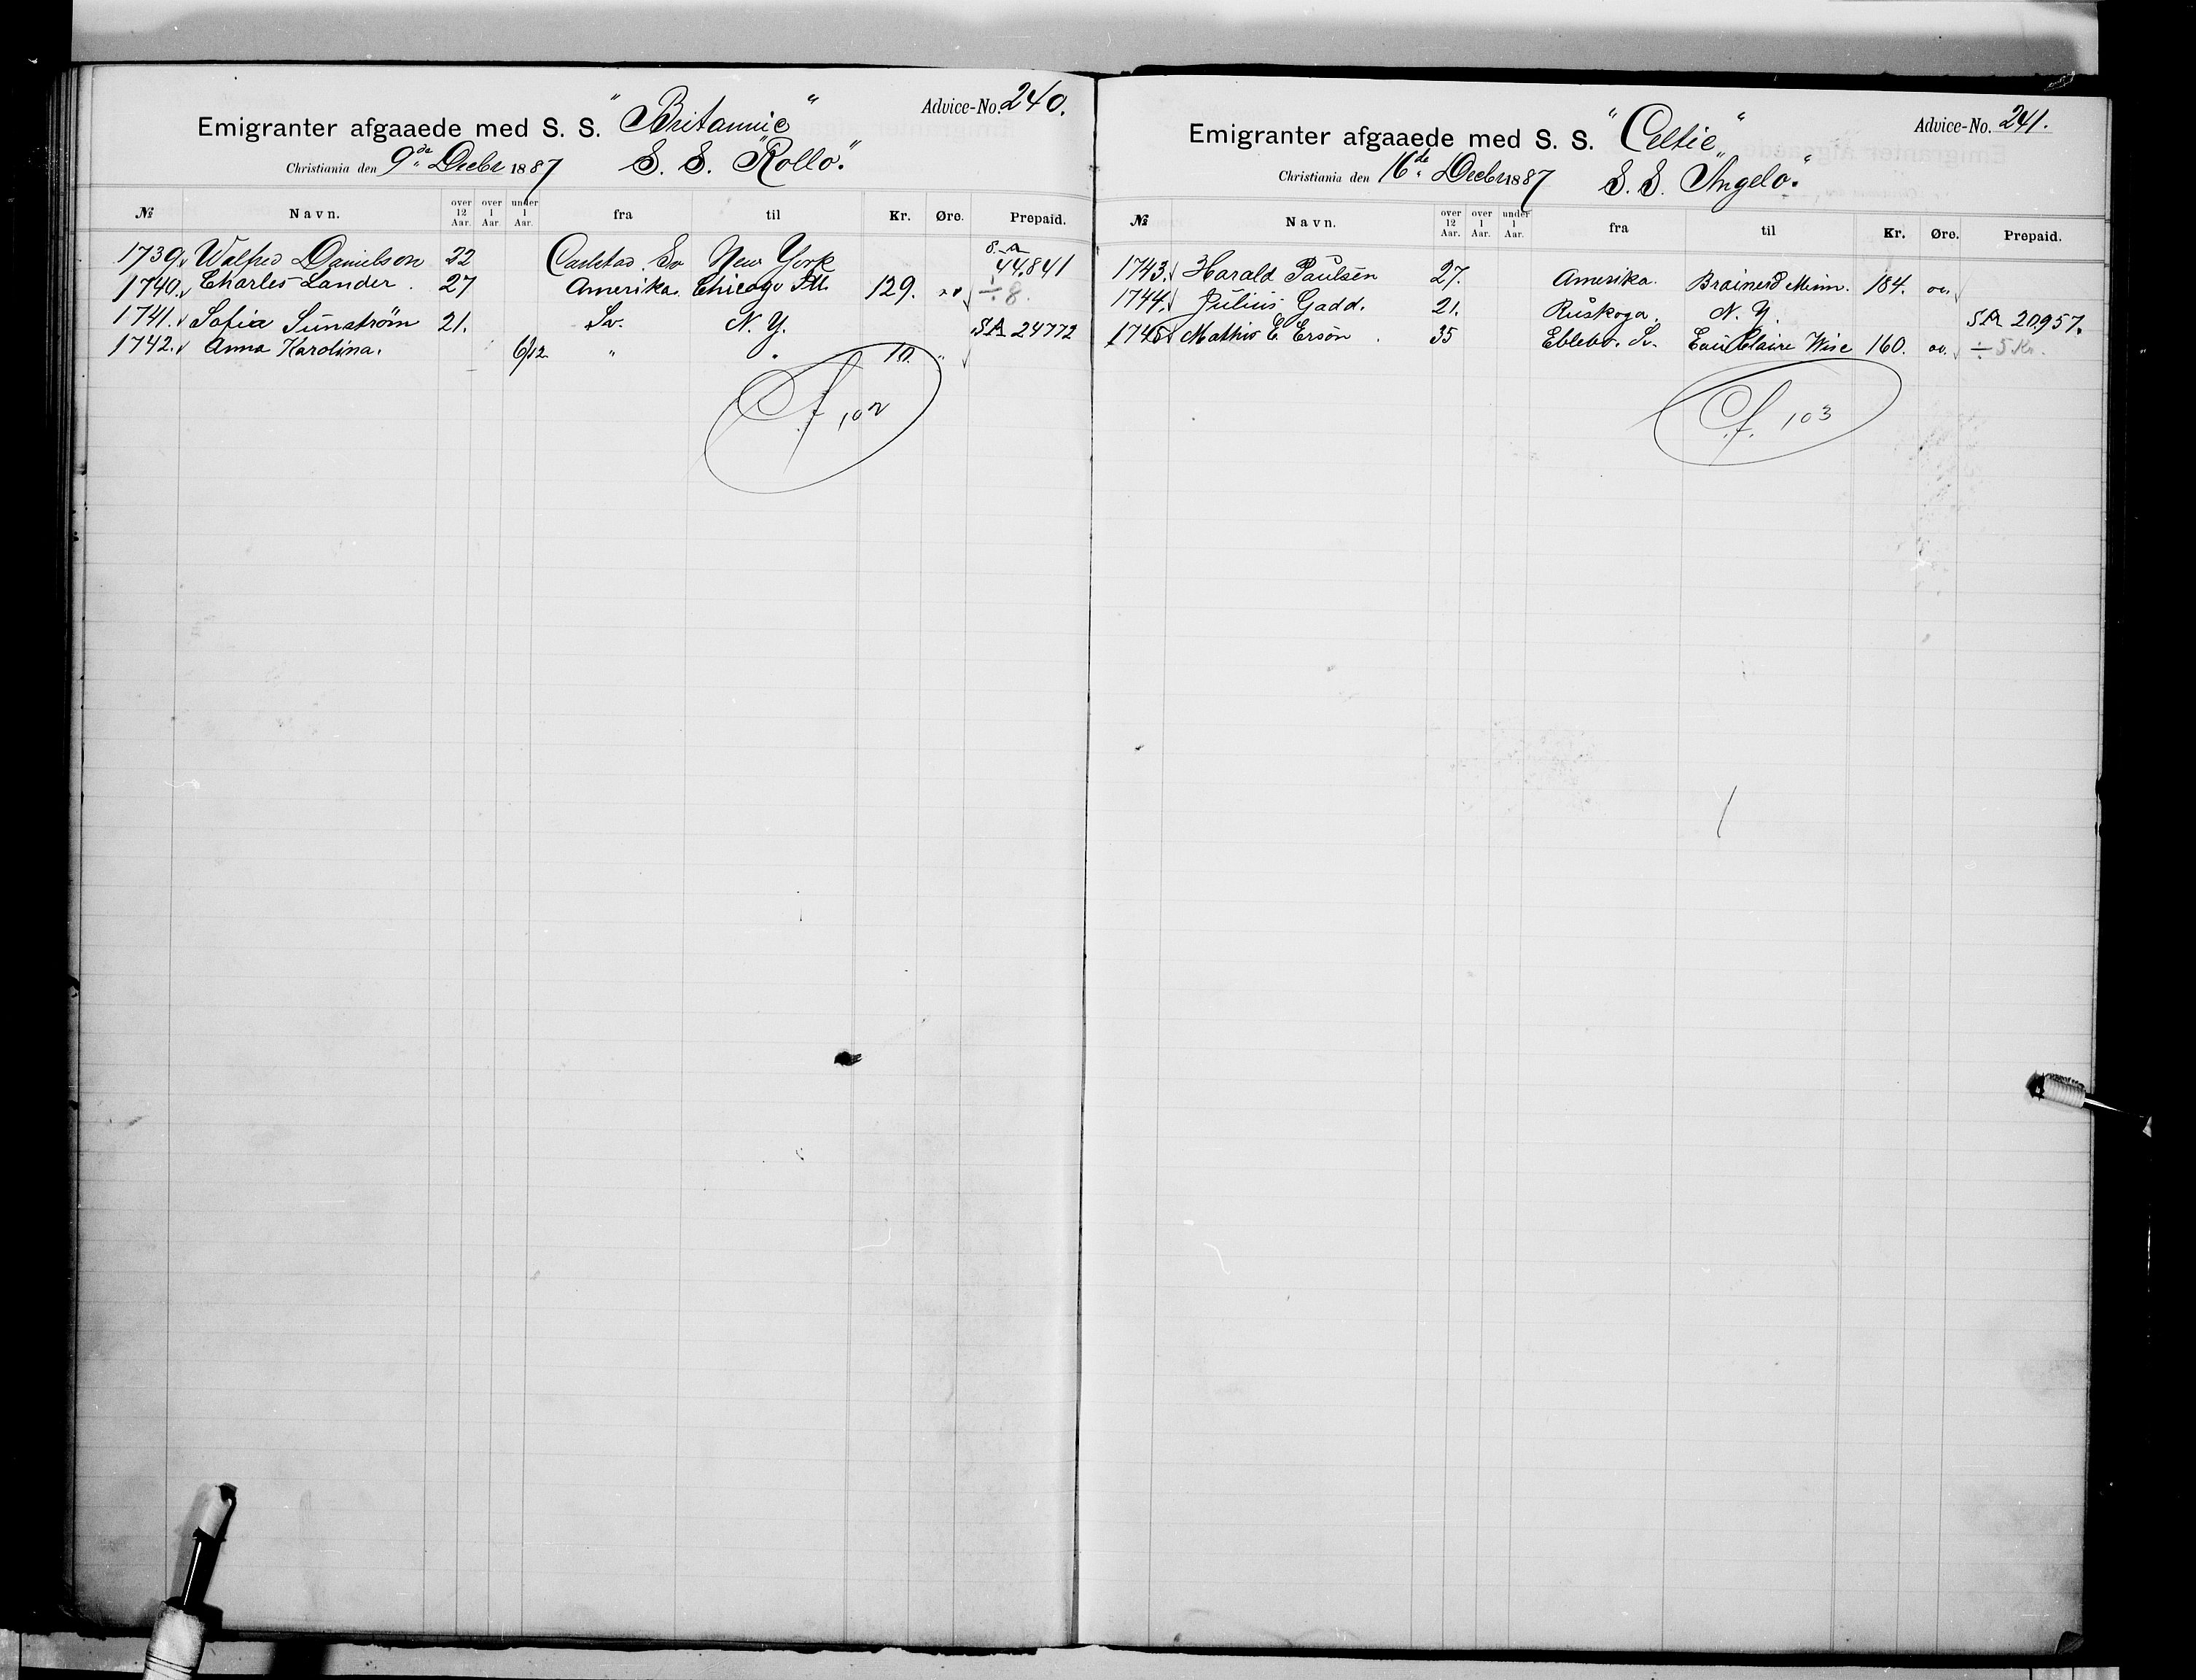 Emigranter afgaaede med S. S. "Britannic" Advice-No. 240.
Christiania den 9de Decbr 1887 S. S. "Rollo."
№ Navn. over 12 Aar. over 1 Aar. under 1 Aar. fra til Kr. Øre. Prepaid.
1739. Walfred Danielson 22 Carlstad. Sv New York S.A 44,841
1740. Charles Lander. 27 Amerika. Chicago Ill. 129. ÷ 8.
1741. Sofia Sunström 21. Sv. N. Y. SA 24772
1742. Anna Karolina. 6/12 " " 10. "
Cf. 102
Emigranter afgaaede med S. S. "Celtic" Advice-No. 241.
Christiania den 16de Decbr 1887 S. S. "Angelo."
№ Navn. over 12 Aar. over 1 Aar. under 1 Aar. fra til Kr. Øre. Prepaid.
1743. Harald Paulsen 27. Amerika. Brainerd Minn. 184. oo.
1744. Julius Gadd. 21. Ruskoga. N. Y. SA 20957.
1745 Mathis E. Ersön. 35 Sv. Eau Claire Wisc 160. oo. ÷ 5 Kr.
Cf. 103